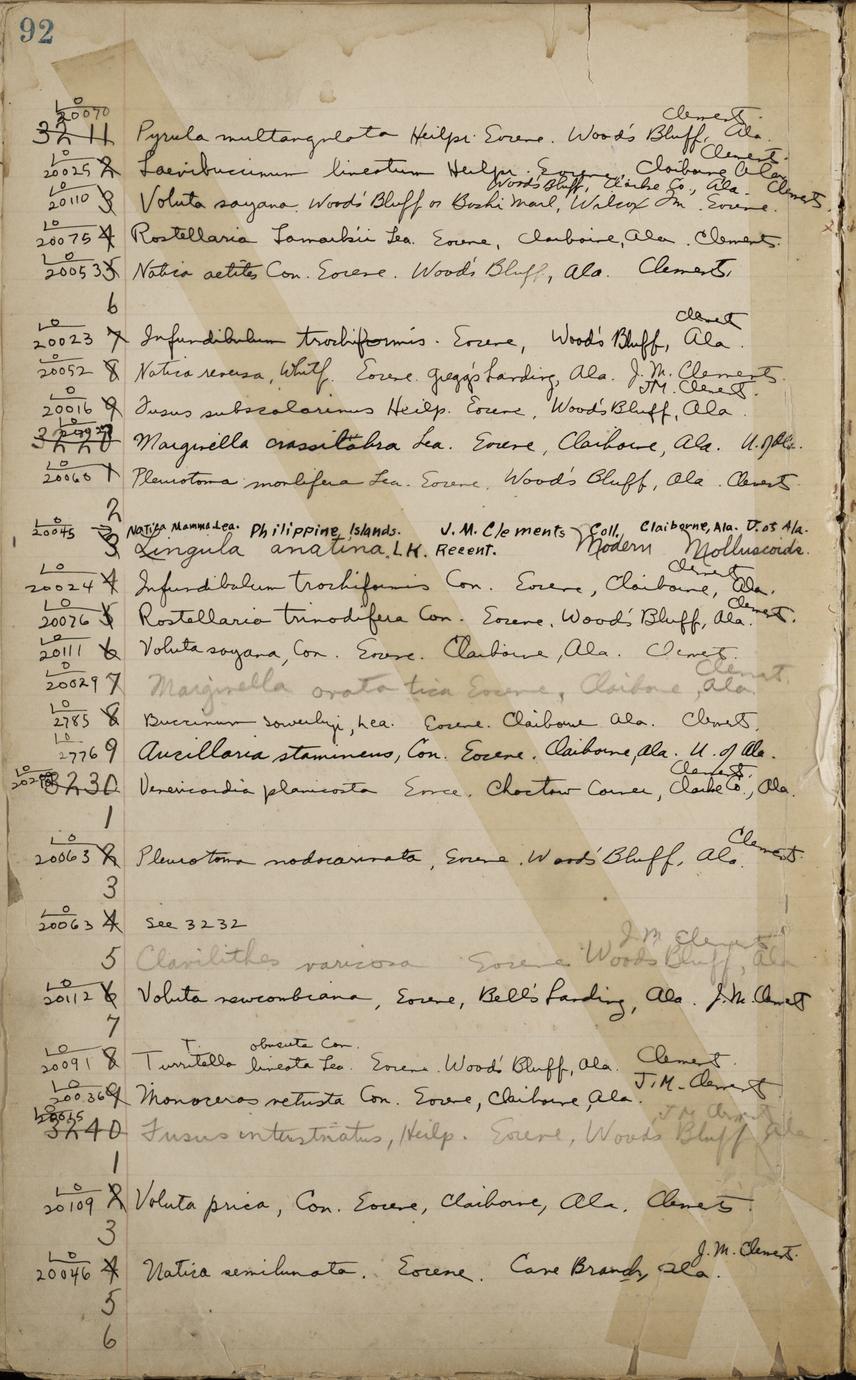 92
LO
20070
3211 Pyrula multangulata Heilpr. Eocene. Wood's Bluff, Ala. Clement.
LO
20025 2 Laevibuccinum lineatum Heilpr. Eocene, Claiborne Ala. Clement.
Wood's Bluff, Clarke Co., Ala. Clement.
LO
20110 3 Voluta sayana. Wood's Bluff or Bashi Marl, Wilcox Fm. Eocene.
LO
20075 4 Rostellaria Lamarkii Lea. Eocene, Claiborne, Ala. Clements.
LO
20053 5 Natica aetites Con. Eocene. Wood's Bluff, Ala. Clement.
6
LO
20023 7 Infundibulum trochiformis. Eocene, Wood's Bluff, Ala. Clement
LO
20052 8 Natica reversa, Whitf. Eocene. Gregg's Landing, Ala. J. M. Clements.
LO
20016 9 Fusus subscalarinus Heilp. Eocene, Wood's Bluff, Ala. J.M. Clement.
LO
3220 Marginella crassilabra Lea. Eocene, Claiborne, Ala. U. of Ala.
LO
20060 1 Pleurotoma monilifera Lea. Eocene, Wood's Bluff, Ala. Clement.
2
LO
20045 Natica Mamma Lea. Philippine Islands. J. M. Clements Coll. Claiborne, Ala. U. of Ala.
3 Lingula anatina. LK. Recent. Modern Molluscoids.
LO
20024 4 Infundibulum trochiformis Con. Eocene, Claiborne, Ala. Clement
LO
20076 5 Rostellaria trinodifera Con. Eocene, Wood's Bluff, Ala. Clement.
LO
20111 6 Voluta sayana, Con. Eocene. Claiborne, Ala. Clement
LO
20029 7 Marginella ovata Eocene, Claiborne, Ala. Clement.
LO
2785 8 Buccinum sowerbyi, Lea. Eocene. Claiborne Ala. Clement.
LO
2776 9 Ancillaria stamineus, Con. Eocene. Claiborne, Ala. U. of Ala.
LO
3230 Venericardia planicosta Eocene. Choctaw Corner, Clarke Co., Ala. Clement.
1
LO
20063 2 Pleurotoma nodocarinata, Eocene. Wood's Bluff, Ala. Clement.
3
LO
20063 4 See 3232
5 Clavilithes varicosa Eocene Wood's Bluff, Ala J. M. Clement
LO
20112 6 Voluta newcombiana, Eocene, Bell's Landing, Ala. J. M. Clement
7
T. obsoleta Con.
LO
20091 8 Turritella lineata Lea. Eocene. Wood's Bluff, Ala. Clement.
LO
20036 9 Monoceros vetusta Con. Eocene, Claiborne, Ala. J. M. Clement
LO
20015
3240 Fusus interstriatus, Heilp. Eocene, Wood's Bluff Ala J M Clement
1
LO
20109 2 Voluta prica, Con. Eocene, Claiborne, Ala. Clement.
3
LO
20046 4 Natica semilunata. Eocene. Cave Branch, Ala. J. M. Clement.
5
6